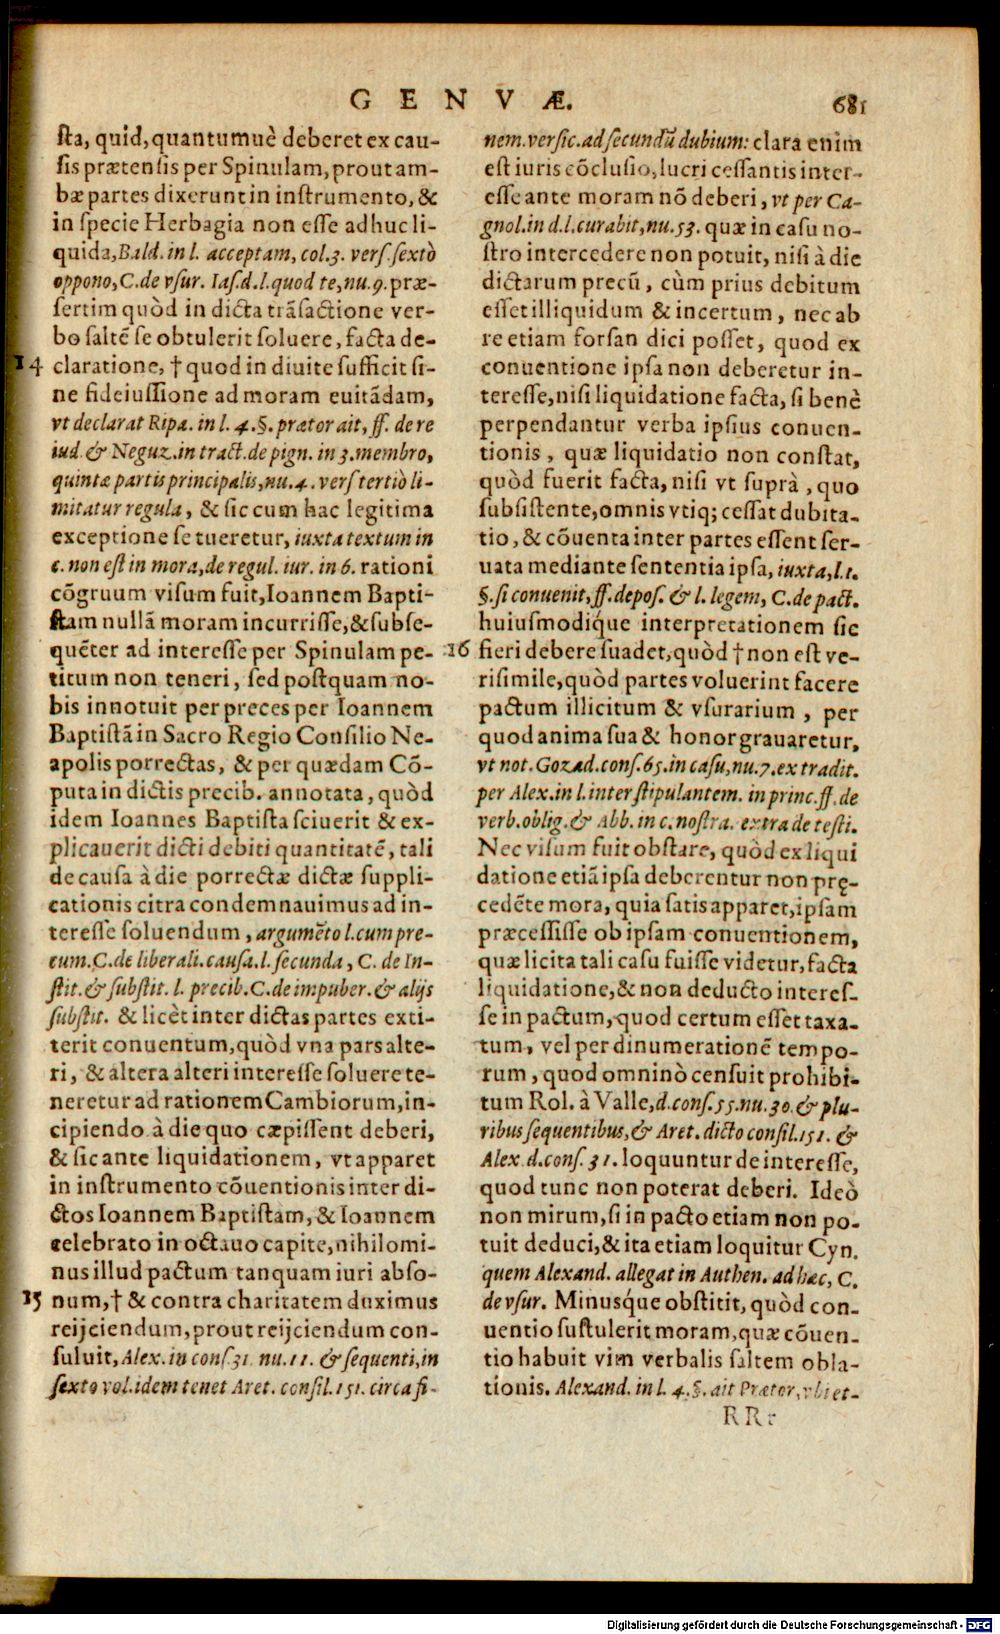 GENVÆ.
681
sta, quid, quantumuè deberet ex cau-
sis prætensis per Spinulam, prout am-
bæ partes dixerunt in instrumento, &
in specie Herbagia non esse adhuc li-
quida, Bald. in l. acceptam, col. 3. vers. sextò
oppono, C. de vsur. Ias. d. l. quod te, nu. 9. præ-
sertim quòd in dicta trãsactione ver-
bo saltẽ se obtulerit soluere, facta de-
14 claratione, † quod in diuite sufficit si-
ne fideiussione ad moram euitãdam,
vt declarat Ripa. in l. 4. §. prætor ait, ff. de re
iud. & Neguz. in tract. de pign. in 3. membro,
quintæ partis principalis, nu. 4. vers tertiò li-
mitatur regula, & sic cum hac legitima
exceptione se tueretur, iuxta textum in
c. non est in mora, de regul. iur. in 6. rationi
cõgruum visum fuit, Ioannem Bapti-
stam nullã moram incurrisse, & subse-
quẽter ad interesse per Spinulam pe-
titum non teneri, sed postquam no-
bis innotuit per preces per Ioannem
Baptistã in Sacro Regio Consilio Ne-
apolis porrectas, & per quædam Cõ-
puta in dictis precib. annotata, quòd
idem Ioannes Baptista sciuerit & ex-
plicauerit dicti debiti quantitatẽ, tali
de causa à die porrectæ dictæ suppli-
cationis citra condemnauimus ad in-
teresse soluendum, argumẽto l. cum pre-
cum. C. de liberali. causa. l. secunda, C. de In-
stit. & substit. l. precib. C. de impuber. & alijs
substit. & licèt inter dictas partes exti-
terit conuentum, quòd vna pars alte-
ri, & altera alteri interesse soluere te-
neretur ad rationem Cambiorum, in-
cipiendo à die quo cæpissent deberi,
& sic ante liquidationem, vt apparet
in instrumento cõuentionis inter di-
ctos Ioannem Baptistam, & Ioannem
celebrato in octauo capite, nihilomi-
nus illud pactum tanquam iuri abso-
15 num, † & contra charitatem duximus
reijciendum, prout reijciendum con-
suluit, Alex. in cons. 31. nu. 11. & sequenti, in
sexto vol. idem tenet Aret. consil. 151. circa fi-
nem. versic. ad secundũ dubium: clara enim
est iuris cõclusio, lucri cessantis inter-
esse ante moram nõ deberi, vt per Ca-
gnol. in d. l. curabit, nu. 53. quæ in casu no-
stro intercedere non potuit, nisi à die
dictarum precũ, cùm prius debitum
esset illiquidum & incertum, nec ab
re etiam forsan dici posset, quod ex
conuentione ipsa non deberetur in-
teresse, nisi liquidatione facta, si benè
perpendantur verba ipsius conuen-
tionis, quæ liquidatio non constat,
quòd fuerit facta, nisi vt suprà, quo
subsistente, omnis vtiq; cessat dubita-
tio, & cõuenta inter partes essent ser-
uata mediante sententia ipsa, iuxta, l. 1.
§. si conuenit, ff. depos. & l. legem, C. de pact.
huiusmodiq́ue interpretationem sic
16 fieri debere suadet, quòd † non est ve-
risimile, quòd partes voluerint facere
pactum illicitum & vsurarium, per
quod anima sua & honor grauaretur,
vt not. Gozad. cons. 65. in casu, nu. 7. ex tradit.
per Alex. in l. inter stipulantem. in princ. ff. de
verb. oblig. & Abb. in c. nostra. extra de testi.
Nec visum fuit obstare, quòd ex liqui
datione etiã ipsa deberentur non prę-
cedẽte mora, quia satis apparet, ipsam
præcessisse ob ipsam conuentionem,
quæ licita tali casu fuisse videtur, facta
liquidatione, & non deducto interes-
se in pactum, quod certum esset taxa-
tum, vel per dinumerationẽ tempo-
rum, quod omninò censuit prohibi-
tum Rol. à Valle, d. cons. 55. nu. 30. & plu-
ribus sequentibus, & Aret. dicto consil. 151. &
Alex. d. cons. 31. loquuntur de interesse,
quod tunc non poterat deberi. Ideò
non mirum, si in pacto etiam non po-
tuit deduci, & ita etiam loquitur Cyn.
quem Alexand. allegat in Authen. ad hæc, C.
de vsur. Minusq́ue obstitit, quòd con-
uentio sustulerit moram, quæ cõuen-
tio habuit vim verbalis saltem obla-
tionis. Alexand. in l. 4. §. ait Prætor, vbi et-
RRr
Digitalisierung gefördert durch die Deutsche Forschungsgemeinschaft - DFG